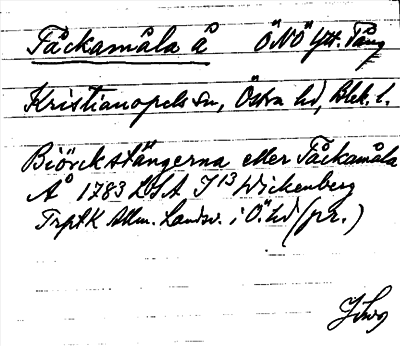 Fåckamåla å ÖNÖ Ytt. Tång
Kristianopels sn, Östra hd, Blek. l.
Biörckstängerna eller Fåckamåla
Å 1783 LSA J 13 Wickenberg
TrptK Allm. Landsv. i Ö. hd (pr.)